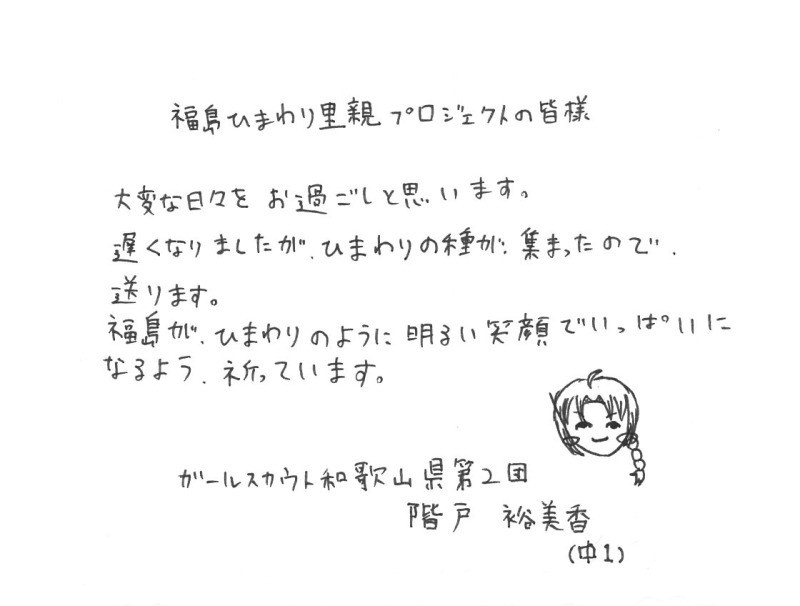 福島ひまわり里親プロジェクトの皆様
大変な日々を お過ごしと思います。
遅くなりましたが、ひまわりの種が、集まったので、
送ります。
福島が、ひまわりのように 明るい笑顔でいっぱいに
なるよう、祈っています。
ガールスカウト和歌山県第2団
階戸 裕美香
(中1)